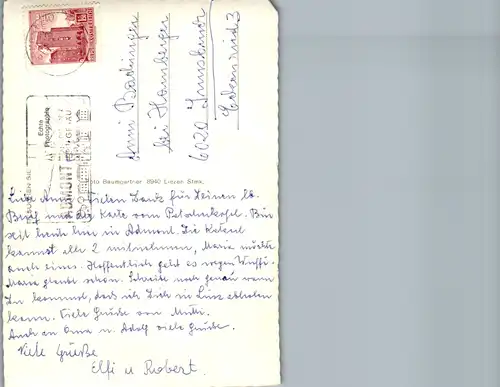 Echte
Photographie
Anni Bachinger
bei Homberger
6020 Innsbruck
Foto Baumgartner 8940 Liezen Stmk.
Liebe Anni! Vielen Dank für Deinen lb.
Brief und die Karte vom Patscherkofel. Bin
seit heute hier in Admont. Die
kannst alle 2 mitnehmen, Maria möchte
auch einen. Hoffentlich geht es wegen
Maria glaubt schon. Schreibe noch genau wann
Du kommst, daß ich Dich in Linz abholen
kann. Viele Grüße von Mutti.
Auch an Oma u. Adolf viele Grüße.
Viele Grüße
Elfi u Robert.